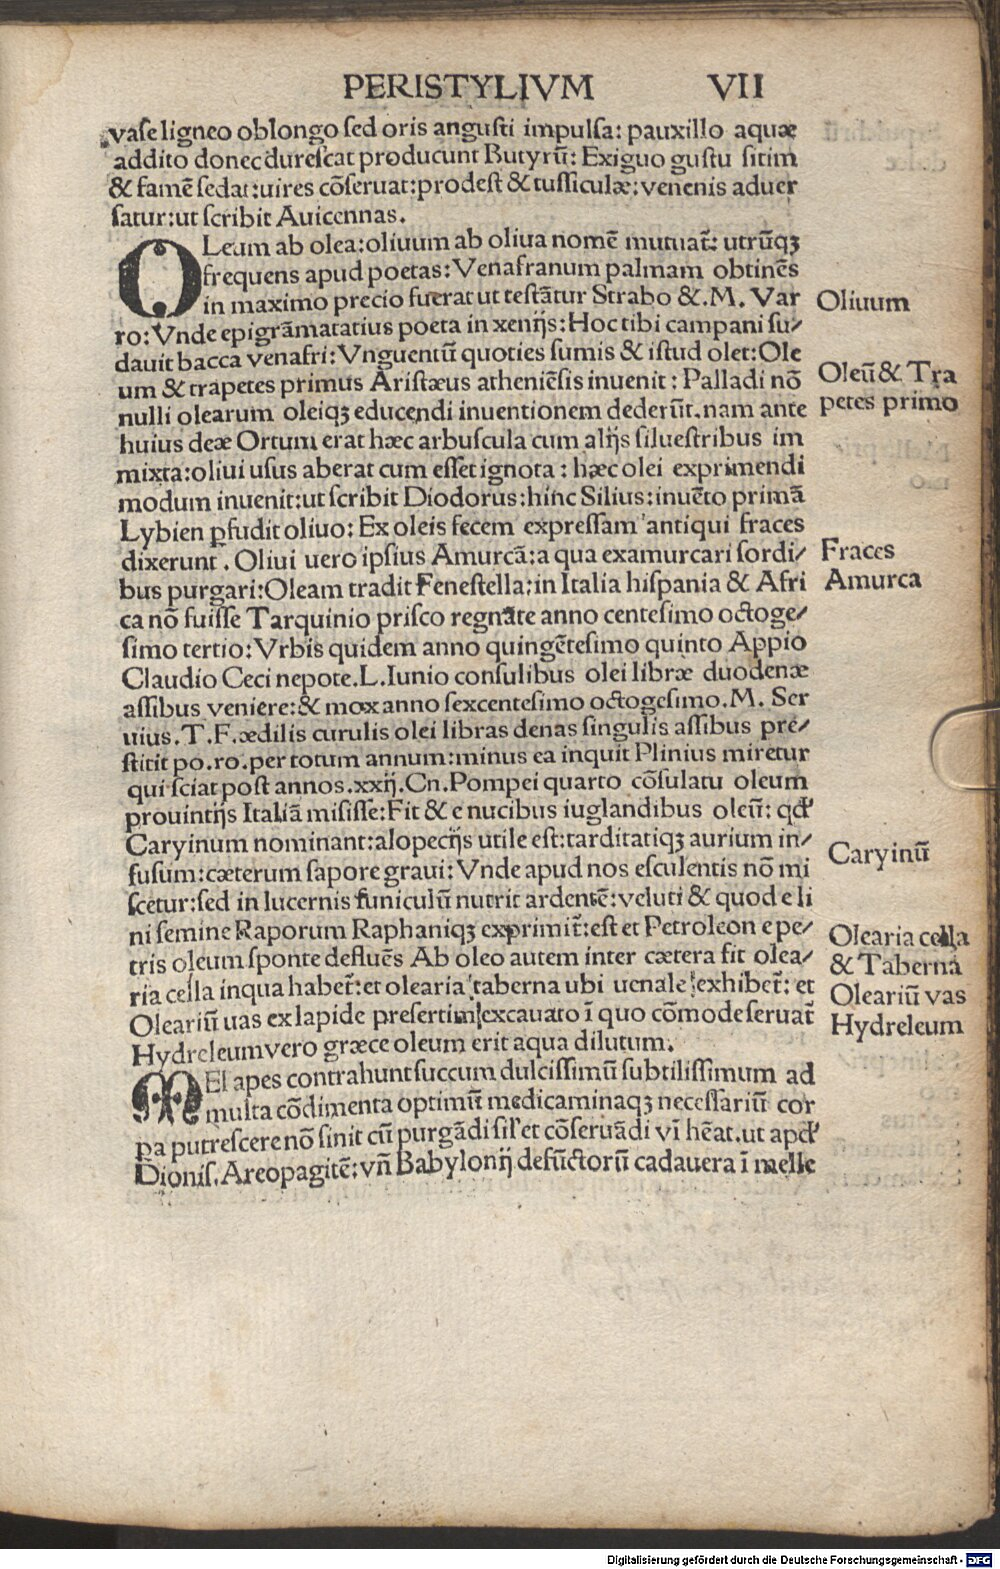 PERISTYLIVM VII
vase ligneo oblongo sed oris angusti impulsa: pauxillo aquæ
addito donec durescat producunt Butyrū: Exiguo gustu sitim
& famē sedat: uires cōseruat: prodest & tussiculæ: venenis aduer
satur: ut scribit Auicennas.
OLeum ab olea: oliuum ab oliua nomē mutuat̄: utrūqꝫ
frequens apud poetas: Venafranum palmam obtinēs
in maximo precio fuerat ut testātur Strabo &. M. Var
ro: Vnde epigrāmatatius poeta in xenijs: Hoc tibi campani su/
dauit bacca venafri: Vnguentū quoties sumis & istud olet: Ole
um & trapetes primus Aristæus atheniēsis inuenit: Palladi nō
nulli olearum oleiqꝫ educendi inuentionem dederūt. nam ante
huius deæ Ortum erat hæc arbuscula cum alijs siluestribus im
mixta: oliui usus aberat cum esset ignota: hæc olei exprimendi
modum inuenit: ut scribit Diodorus: hinc Silius: inuēto primā
Lybien ꝑfudit oliuo: Ex oleis fecem expressam antiqui fraces
dixerunt. Oliui uero ipsius Amurcā: a qua examurcari sordi/
bus purgari: Oleam tradit Fenestella: in Italia hispania & Afri
ca nō fuisse Tarquinio prisco regnāte anno centesimo octoge/
simo tertio: Vrbis quidem anno quingētesimo quinto Appio
Claudio Ceci nepote. L. Iunio consulibus olei libræ duodenæ
assibus veniere: & mox anno sexcentesimo octogesimo. M. Ser
uius. T. F. ædilis curulis olei libras denas singulis assibus pre/
stitit po. ro. per totum annum: minus ea inquit Plinius miretur
qui sciat post annos. xxij. Cn. Pompei quarto cōsulatu oleum
prouintijs Italiā misisse: Fit & e nucibus iuglandibus oleū: qđ
Caryinum nominant: alopecijs utile est: tarditatiqꝫ aurium in/
fusum: cæterum sapore graui: Vnde apud nos esculentis nō mi
scetur: sed in lucernis funiculū nutrit ardentē: veluti & quod e li
ni semine Raporum Raphaniqꝫ exprimit̄: est et Petroleon e pe/
tris oleum sponte defluēs Ab oleo autem inter cætera fit olea/
ria cella inqua habet̄: et olearia taberna ubi uenale exhibet̄: et
Oleariū uas ex lapide presertim excauato ī quo cōmode seruat̄
Hydreleum vero græce oleum erit aqua dilutum.
MEl apes contrahunt succum dulcissimū subtilissimum ad
multa cōdimenta optimū medicaminaqꝫ necessariū cor
pa putrescere nō sinit cū purgādi sil' et cōseruādi vī hēat. ut apđ
Dionis. Areopagitē: vñ Babylonij defūctorū cadauera ī melle
Oliuum
Oleū & Tra
petes primo
Fraces
Amurca
Caryinū
Olearia cella
& Taberna
Oleariū vas
Hydreleum
Digitalisierung gefördert durch die Deutsche Forschungsgemeinschaft - DFG